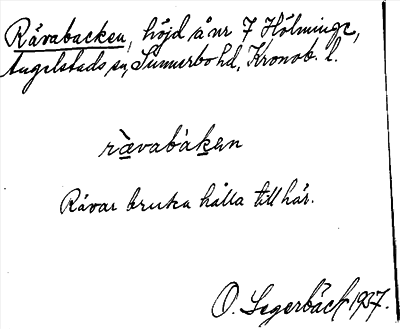 Rävabacken, höjd å nr 7 Hölminge,
Angelstads sn, Sunnerbo hd, Kronob. l.
rävabàken
Rävar bruka hålla till här.
O. Segerbäck 1937.